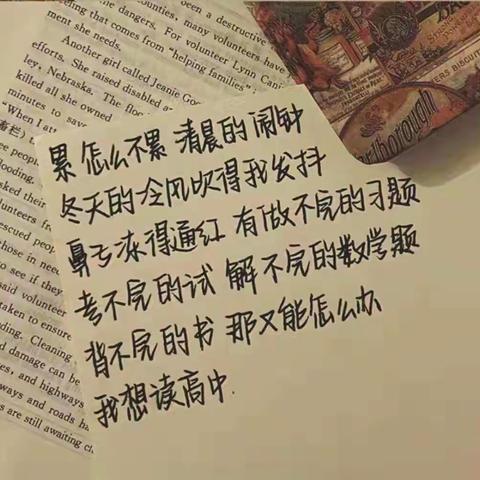 been a destructive
the dangers. For
ling that comes from "helping families"
ment she needs.
countries, many volunteers have
efforts. For volunteer Lynn
Another girl called Jeanie
efforts. She raised disabled
ley, Nebraska. The
killed all she owned
minutes to save
"When I
ERS BISCUI
borough
累 怎么不累 清晨的闹钟
冬天的冷风吹得我发抖
鼻子冻得通红 有做不完的习题
考不完的试 解不完的数学题
背不完的书 那又能怎么办
我想读高中
see people
looding.
asked their
lunteers from
escued people
those in need
to see if they
said volunteer
taken to ensure
ding. Cleaning
d damage can be
es, and highways
ways and roads ha
s are still awaiting